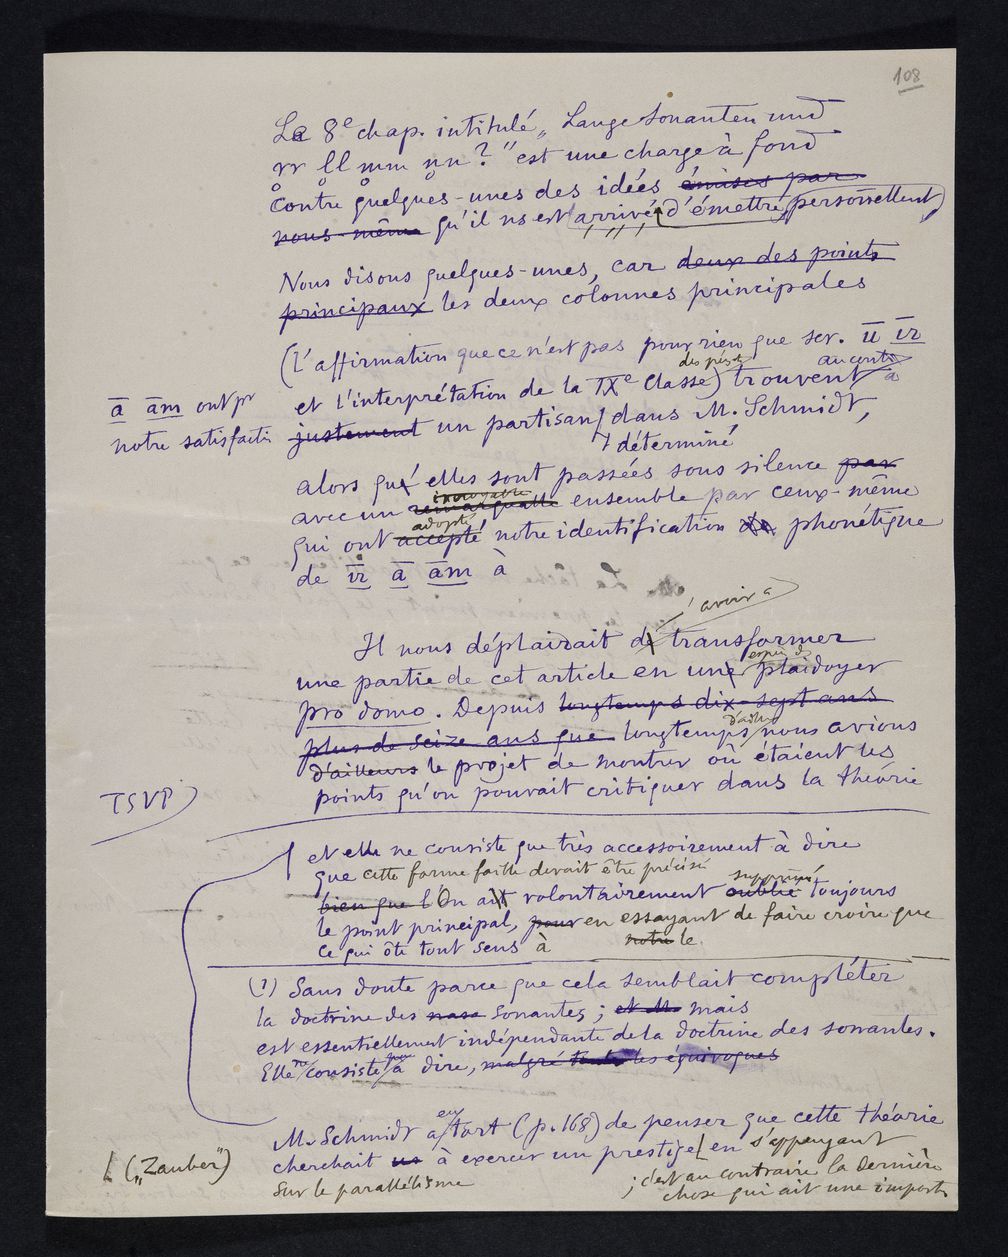 108
Le 8e chap. intitulé „Lange Sonanten und
r̥r l̥l m̥m n̥n?" est une charge à fond
contre quelques-unes des idées émises par
nous-même qu'il ns est arrivé d'émettre personnellement
Nous disons quelques-unes, car deux des points
principaux les deux colonnes principales
(l'affirmation que ce n'est pas pour rien que scr. ū īr
des prés.
au conte
et l'interprétation de la IXe classe) trouvent à
ā ām ont pr
notre satisfacti
justement un partisan dans M. Schmidt,
déterminé
alors que elles sont passées sous silence par
incroyable
avec un remarquable ensemble par ceux-même
adopté
qui ont accepté notre identification de phonétique
de īr ā ām à
avoir à
Il nous déplairait de transformer
espèce de
une partie de cet article en une plaidoyer
pro domo. Depuis longtemps dix-sept ans
d'aill
plus de seize ans que longtemps nous avions
d'ailleurs le projet de montrer où étaient les
points qu'on pouvait critiquer dans la théorie
TSVP
et elle ne consiste que très accessoirement à dire
que cette forme faible devait être précisé
supprimé
bien que l'On ait volontairement oublié toujours
le point principal, pour en essayant de faire croire que
ce qui ôte tout sens à notre le
(1) Sans doute parce que cela semblait compléter
la doctrine des nasa sonantes; et M. mais
est essentiellement indépendante de la doctrine des sonantes.
Elle ne consiste pas à dire, malgré toutes les équivoques
M. Schmidt a eu tort (p. 168) de penser que cette théorie
cherchait un à exercer un prestige en s'appuyant
(„Zauber")
sur le parallélisme
; c'est au contraire la dernière
chose qui ait une import